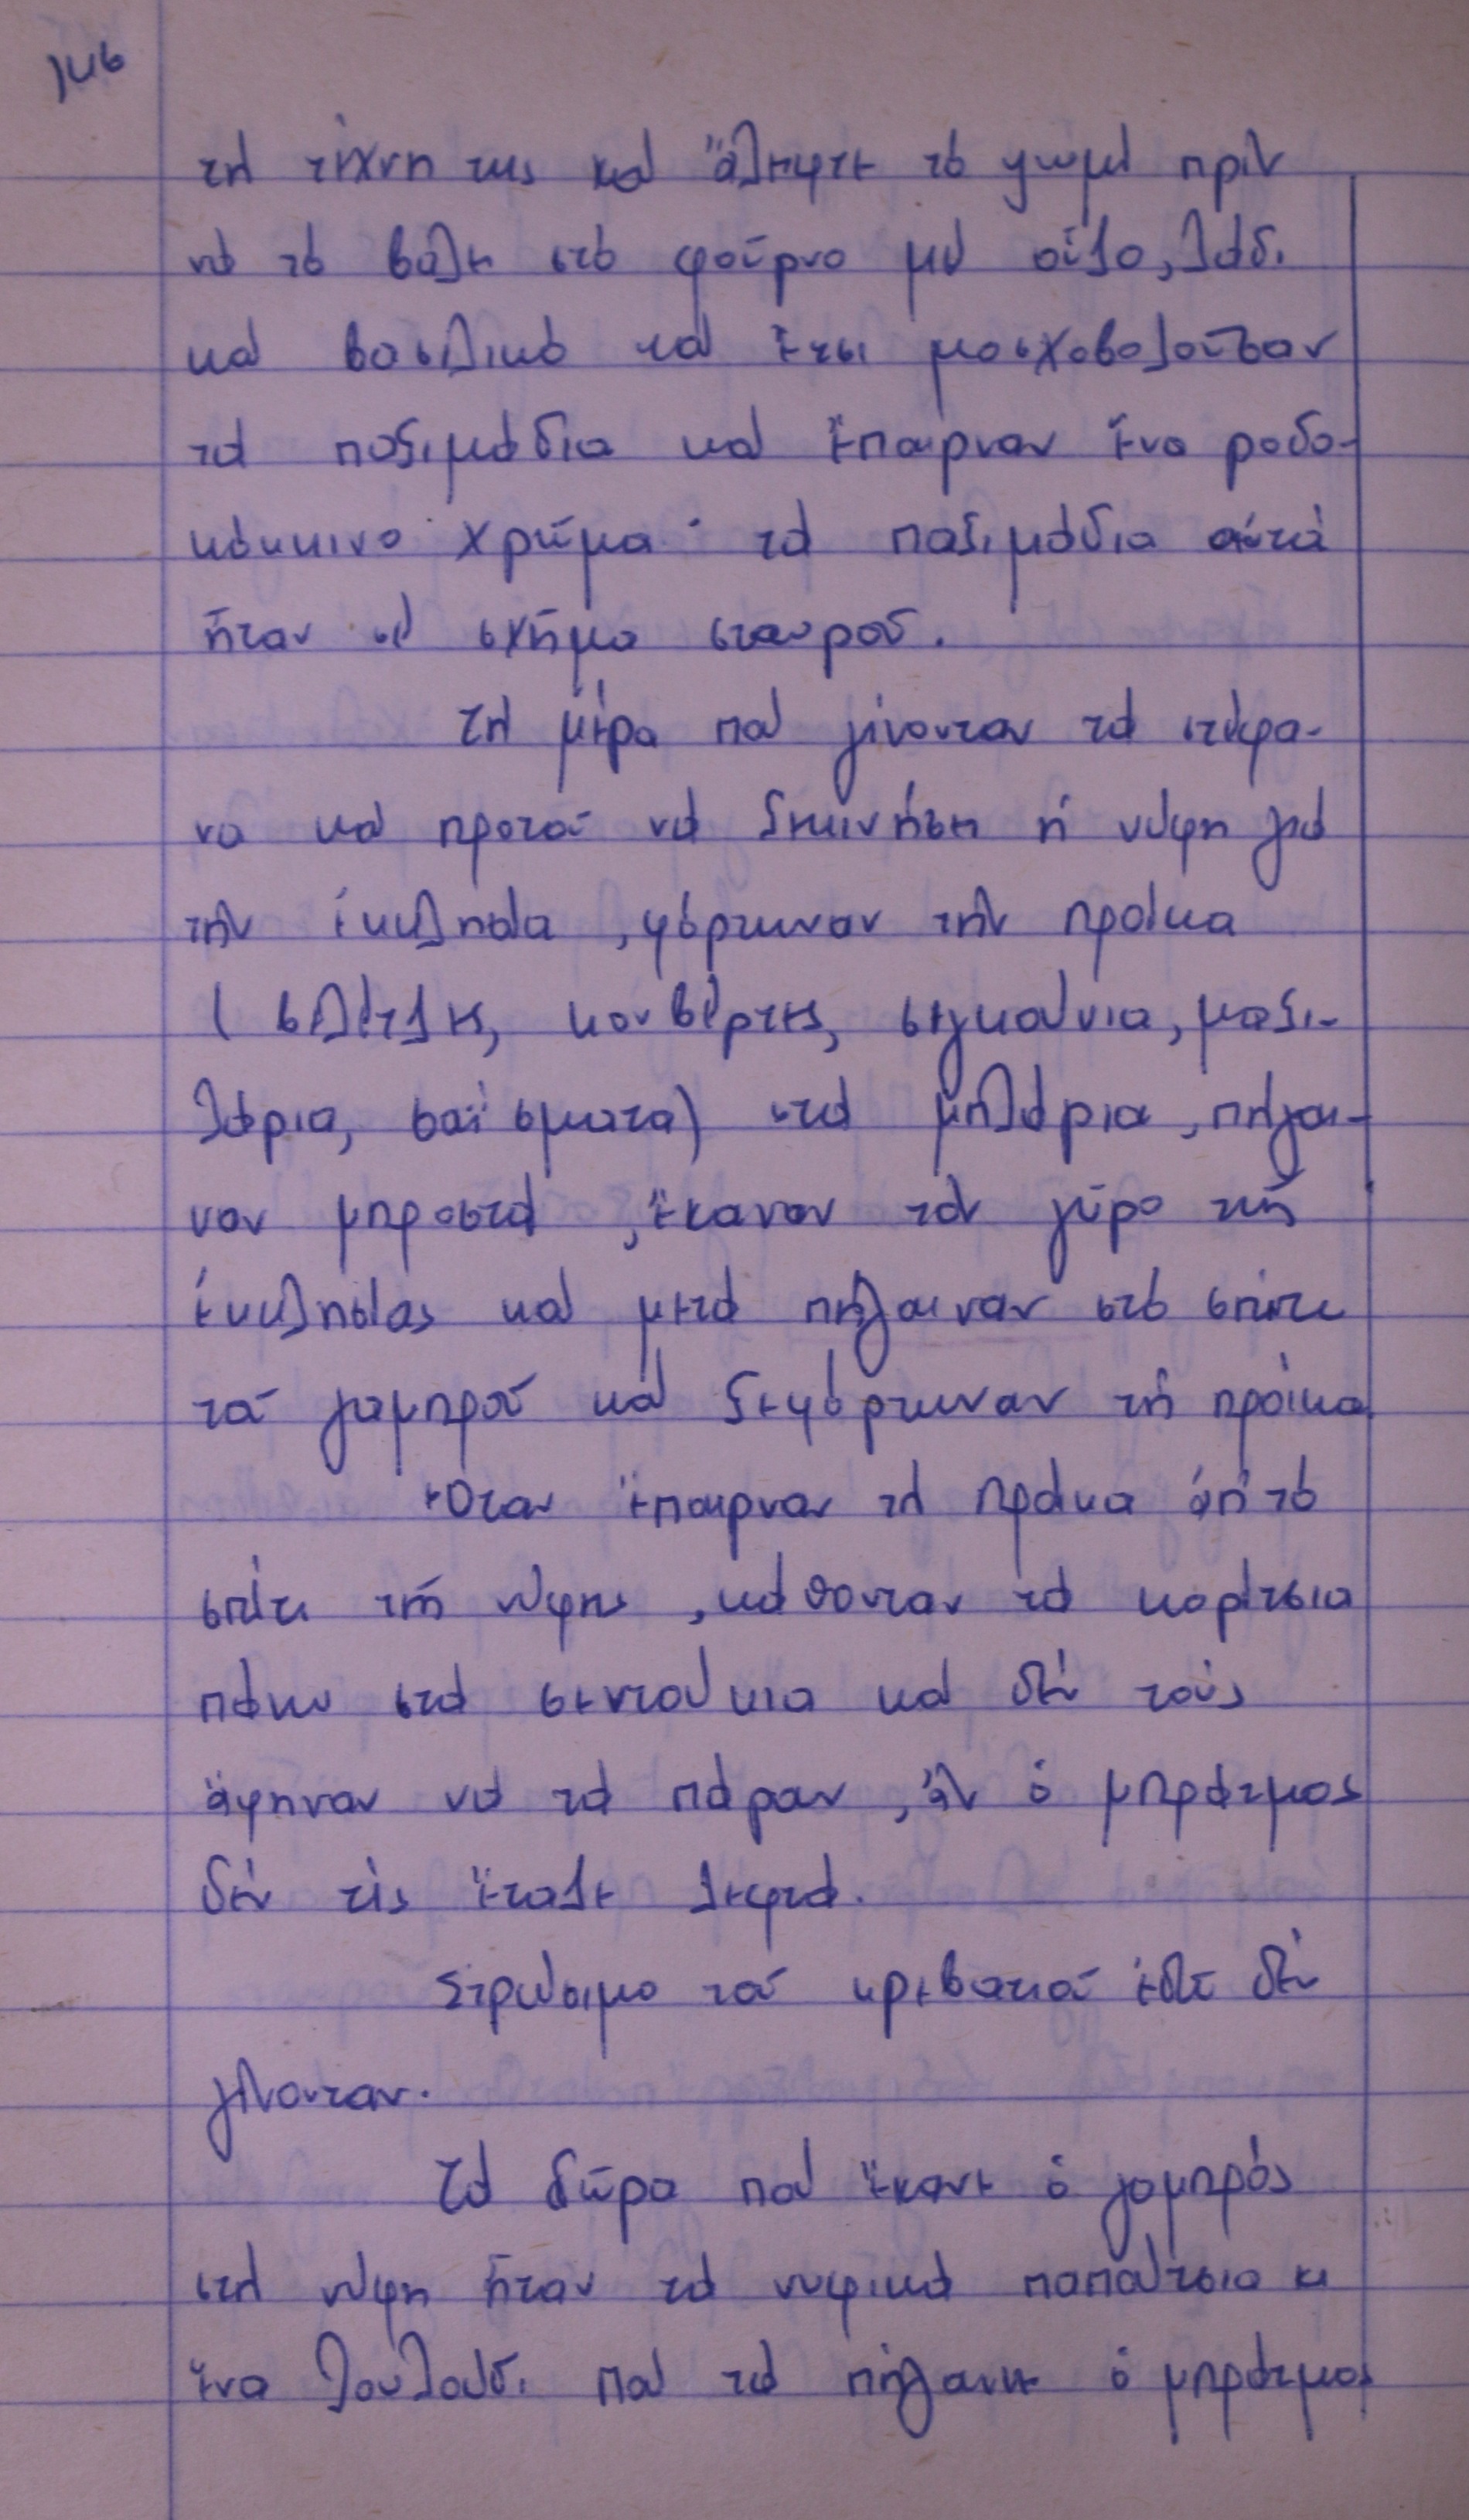 146
τὴ τέχνη της καὶ ἄλειψε τὸ ψωμὶ πρὶν
νὰ τὸ βάλει στὸ φοῦρνο μὲ οὖζο, λάδι
καὶ βασιλικὸ καὶ ἔτσι μοσχοβολοῦσαν
τὰ παξιμάδια καὶ ἔπαιρναν ἕνα ροδο-
κόκκινο χρῶμα· τὰ παξιμάδια αὐτὰ
ἦταν σὲ σχῆμα σταυροῦ.
Τὴ μέρα ποὺ γίνονταν τὰ στέφα-
να καὶ προτοῦ νὰ ξεκινήσει ἡ νύφη γιὰ
τὴν ἐκκλησία, φόρτωναν τὴν προίκα
( βελέντζες, κουβέρτες, σεγκούνια, μαξι-
λάρια, σαΐσματα) στὰ μουλάρια, πήγαι-
ναν μπροστά, ἔκαναν τὸν γύρο τῆς
ἐκκλησίας καὶ μετὰ πήγαιναν στὸ σπίτι
τοῦ γαμπροῦ καὶ ξεφόρτωναν τὴ προίκα
Ὅταν ἔπαιρναν τὴ προίκα ἀπ' τὸ
σπίτι τῆς νύφης, κάθονταν τὰ κορίτσια
πάνω στὰ σεντούκια καὶ δὲν τοὺς
ἄφηναν νὰ τὰ πάρουν, ἂν ὁ μπράτιμος
δὲν τὶς ἔταζε λεφτά.
Στρώσιμο τοῦ κρεβατιοῦ ἐδῶ δὲν
γίνονταν.
Τὰ δῶρα ποὺ ἔκανε ὁ γαμπρός
στὴ νύφη ἦταν τὰ νυφικὰ παπούτσια κι
ἕνα λουλούδι ποὺ τὰ πήγαινε ὁ μπράτιμος